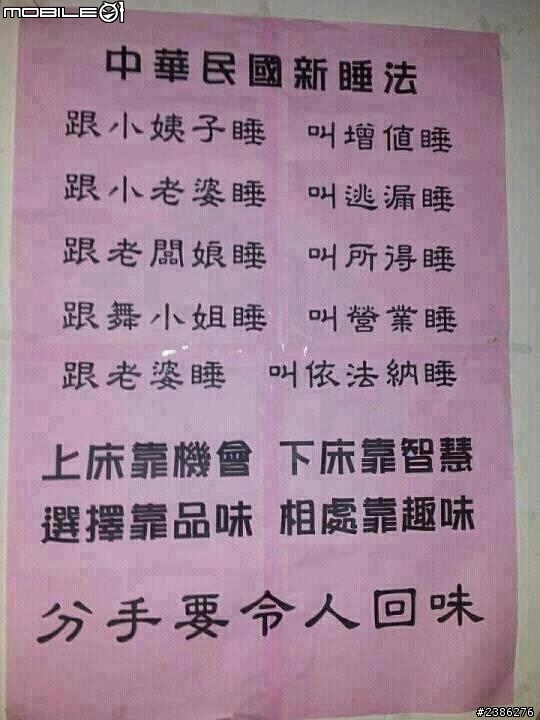 MOBILE01
中華民國新睡法
跟小姨子睡 叫增值睡
跟小老婆睡 叫逃漏睡
跟老闆娘睡 叫所得睡
跟舞小姐睡 叫營業睡
跟老婆睡 叫依法納睡
上床靠機會 下床靠智慧
選擇靠品味 相處靠趣味
分手要令人回味
#2386276